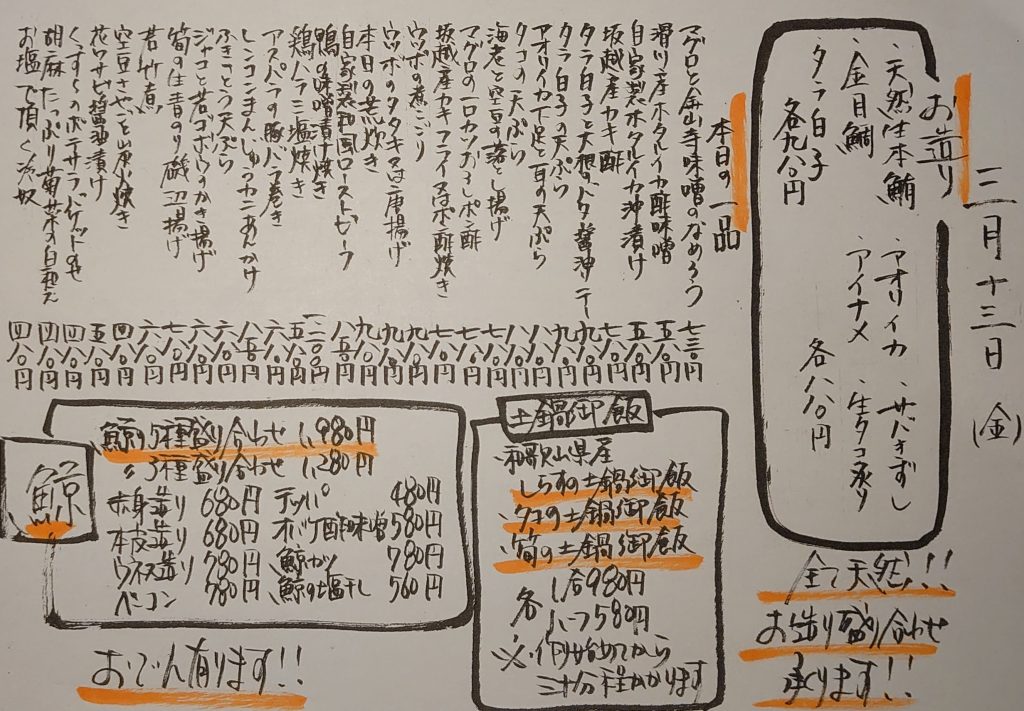 三月十三日(金)
お造り
・天然生本鮪
・アオリイカ
・サバきずし
・金目鯛
・アイナメ
・生タコ造り
・タラ白子
各九八〇円
各八八〇円
全て天然!!
お造り盛り合わせ
承ります!!
本日の一品
マグロと金山寺味噌のなめろう 七三〇円
滑川産ホタルイカ酢味噌 五八〇円
自家製ホタルイカ沖漬け 五八〇円
坂越産カキ酢
タラ白子と大根のバター醤油ソテー 九八〇円
タラ白子の天ぷら 九八〇円
アオリイカ下足と百合の天ぷら 八八〇円
タコの天ぷら 八八〇円
海老と空豆の落とし揚げ 七八〇円
マグロの一口カツおろしポン酢
坂越産カキフライ又はポン酢焼き
ウツボの煮こごり
ウツボのタタキ又は唐揚げ 九八〇円
本日の荒炊き
自家製和風ローストビーフ
鴨の味噌漬け焼き
鶏ハラミ塩焼き
アスパラの豚バラ巻き
レンコンまんじゅうカニあんかけ
ふきのとう天ぷら
ジャコと若ゴボウのかき揚げ
筍の生青のり磯辺揚げ
若竹煮
空豆さやごと山廃炊き
花ワサビ醤油漬け
くっすーのポテサラ、バゲットのせ
胡麻たっぷり菊菜の白和え
お塩で頂く冷奴
土鍋御飯
・和歌山県産
しらすの土鍋御飯
・タコの土鍋御飯
・筍の土鍋御飯
各 1合980円
ハーフ580円
※作り始めてから
三十分程かかります
鯨
鯨5種盛り合わせ 1,980円
〃3種盛り合わせ 1,280円
赤身造り 680円 テッパ 480円
本皮造り 680円 オバケ酢味噌 580円
ウネス造り 780円 鯨カツ 780円
ベーコン 780円 鯨の塩干し 560円
おでん有ります!!